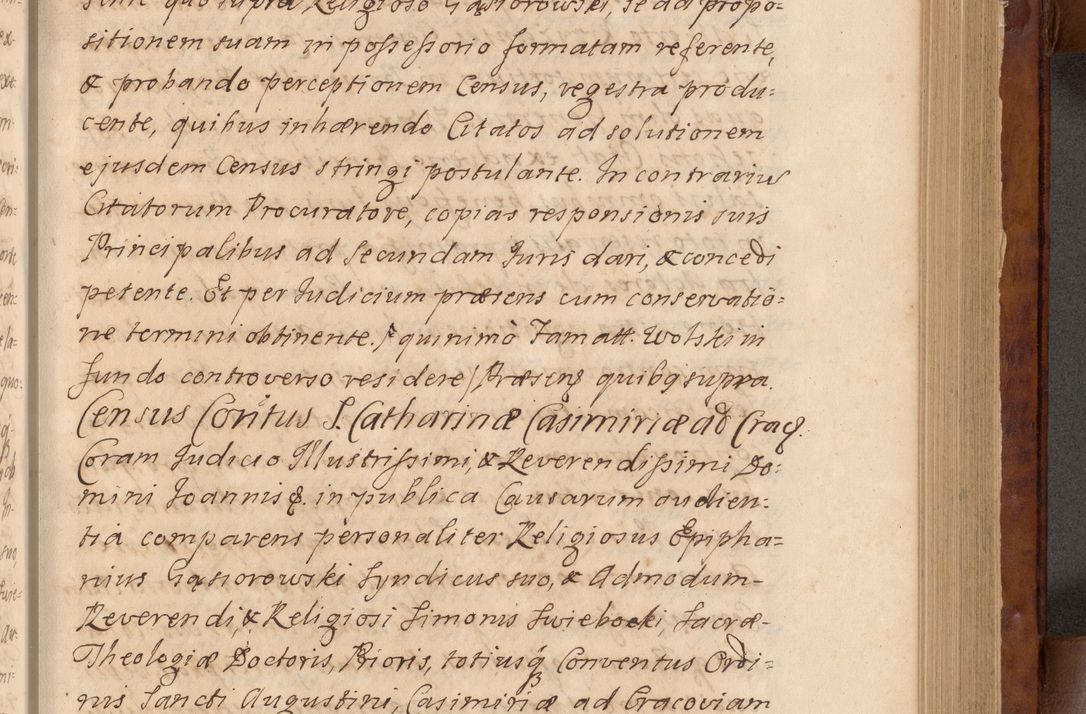 sitionem suam in possessorio formatam referente,
& probando perceptionem Census, regestra produ:
cente, quibus inhærendo Citatos ad solutionem
ejusdem Census stringi postulante. In contrarius
Citatorum Procuratore, copias responsionis suis
Principalibus ad Secundam Juris dari, & concedi
petente. Et per Judicium præsens cum conservatio:
ne termini obtinente. quinimò Famatt. Wolski in
fundo controverso residere / Præsent quibq supra.
Census Contus S. Catharinæ Casimiriæ ad Crac.
Coram Judicio Illustrissimi, & Reverendissimi Do:
mini Joannis &. in publica Causarum audien:
tia comparens personaliter Religiosus Epipha=
nius Gąsiorowski Syndicus suo, & Admodum-
Reverendi, & Religiosi Simonis Swiebocki, Sacræ-
Theologiæ Doctoris, Prioris, totiusq Conventus Ordi=
nis Sancti Augustini, Casimiriæ ad Cracoviam